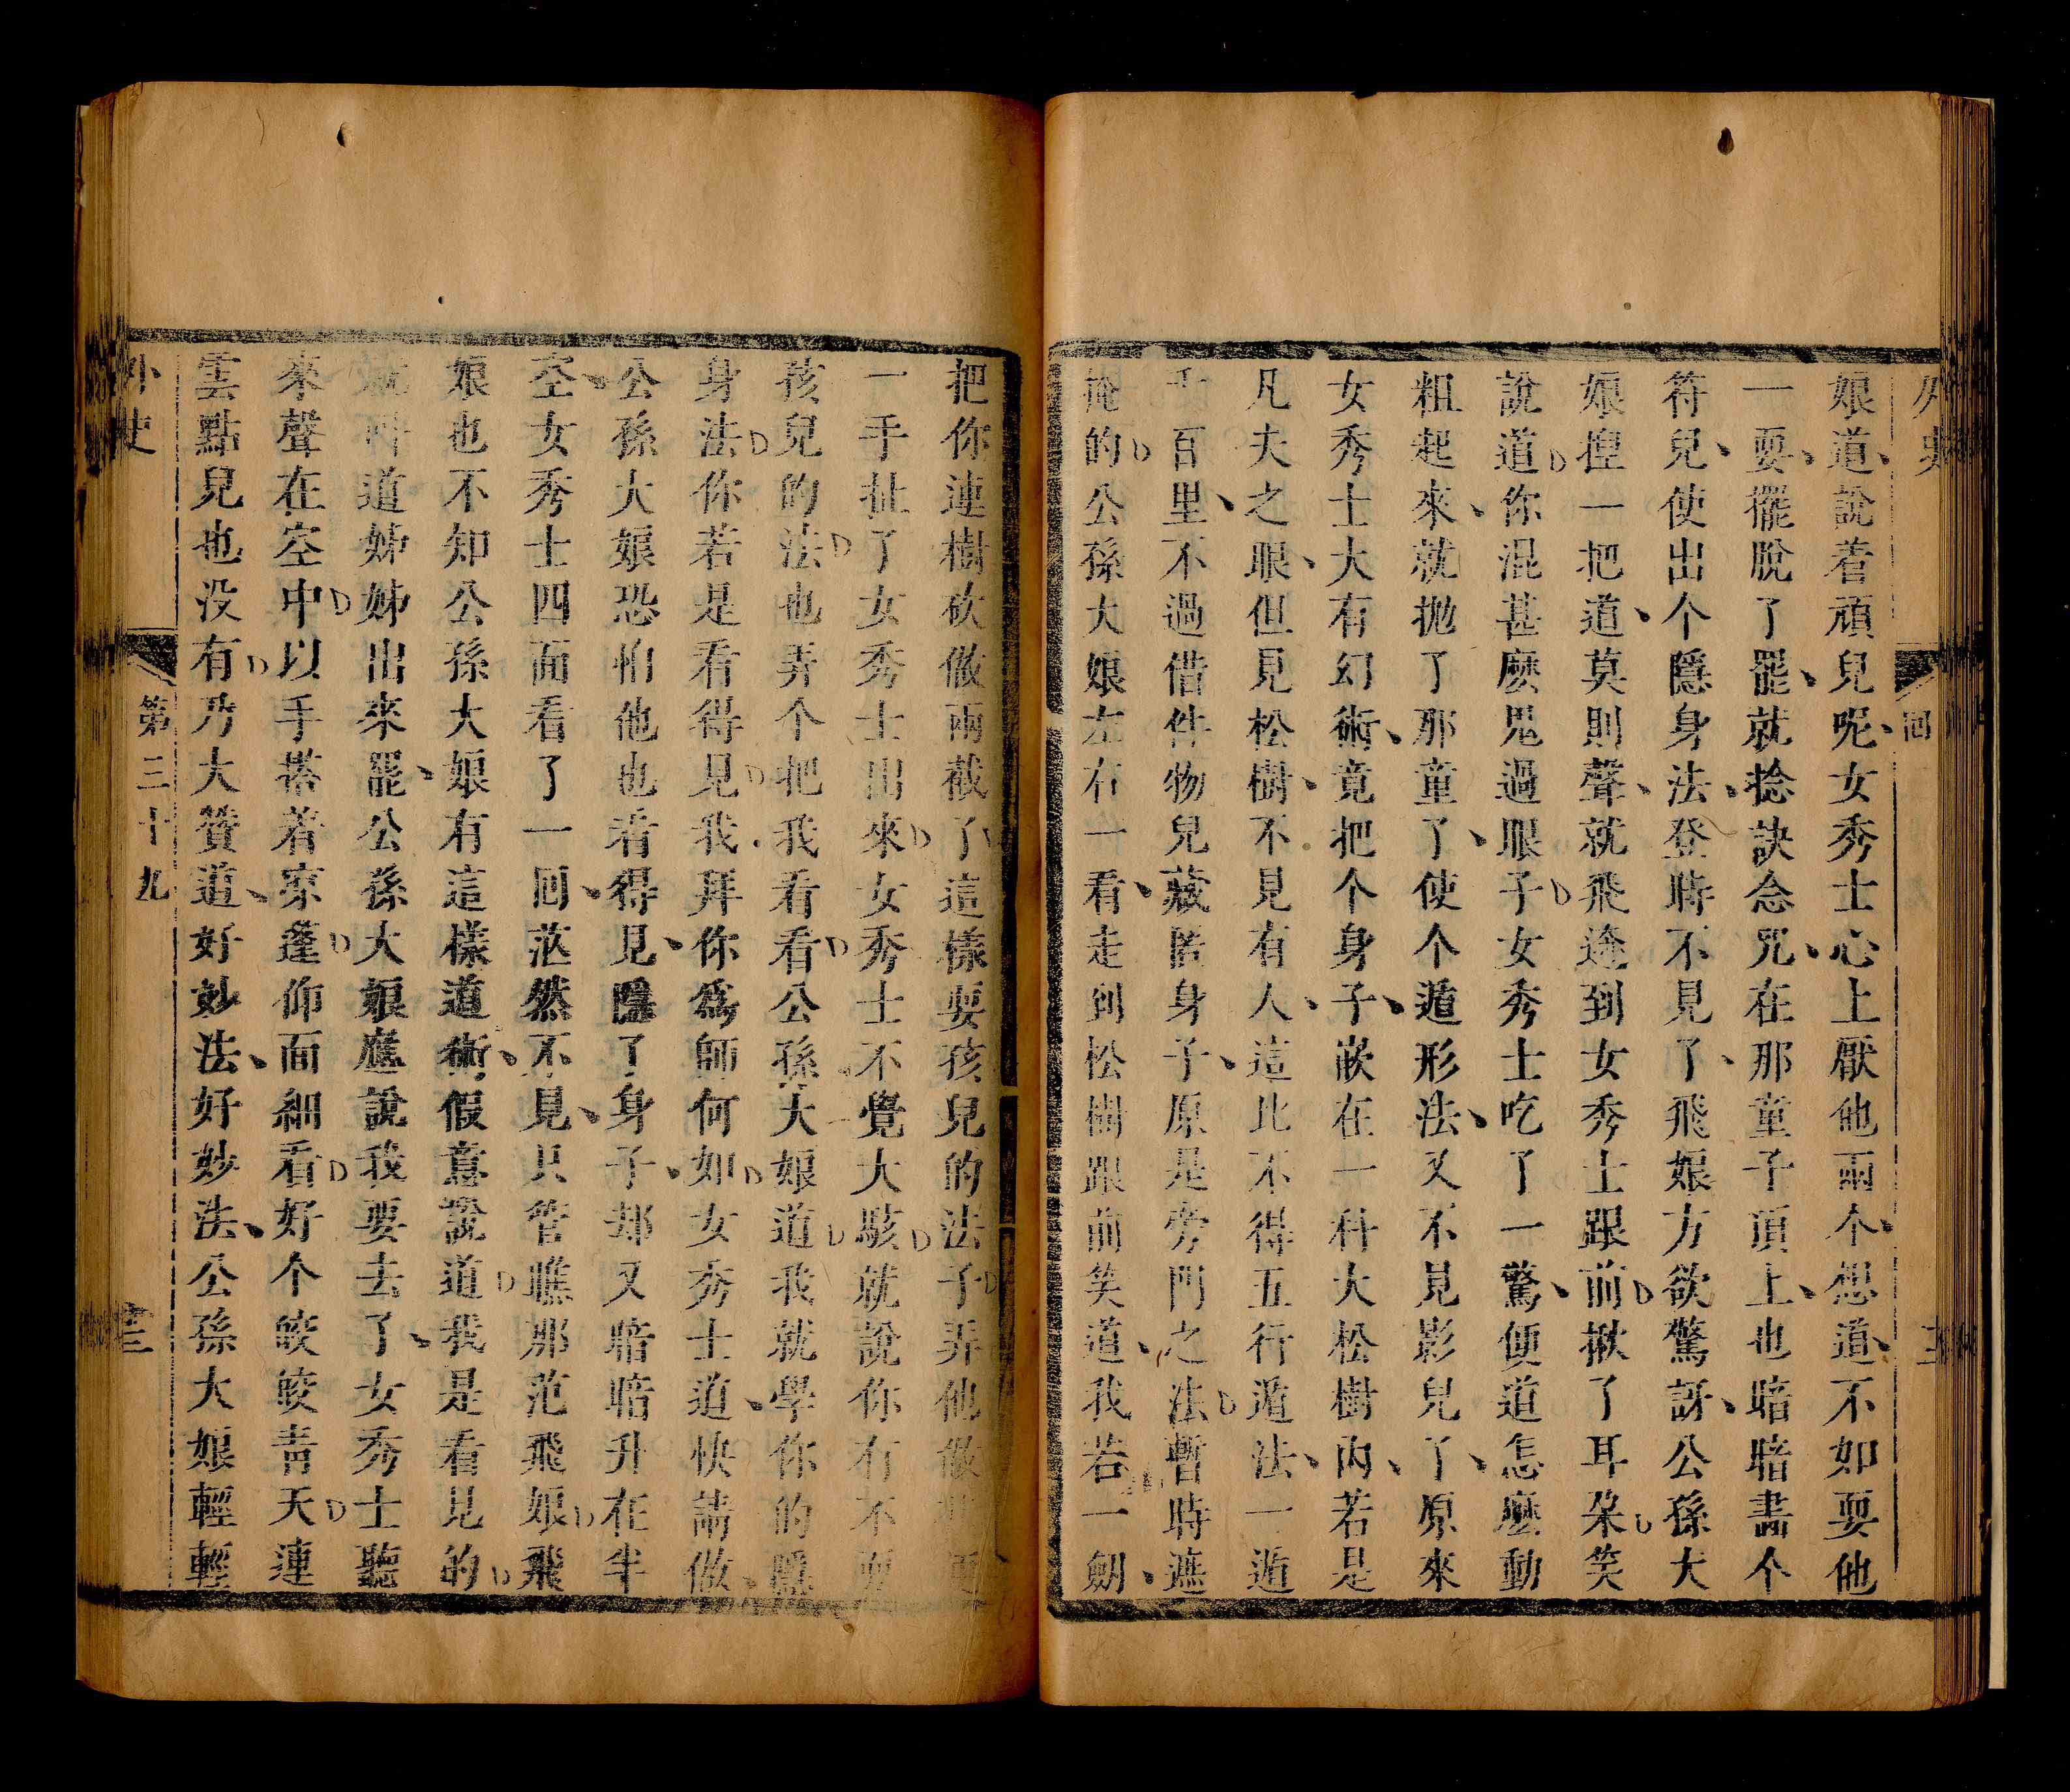 外史
回
娘道說着頑兒呢女秀士心上厭他兩个想道不如耍他
一耍擺脫了罷就捻訣念咒在那童子頂上也暗暗書个
符兒使出个隱身法登時不見了飛娘方欲驚訝公孫大
娘揑一把道莫則聲就飛逩到女秀士跟前揪了耳朶笑
說道你混甚麽鬼過眼子女秀士吃了一驚便道怎麽動
粗起來就拋了那童了使个遁形法又不見影兒了原來
女秀士大有幻術竟把个身子嵌在一科大松樹内若是
凡夫之眼但見松樹不見有人這比不得五行遁法一遁
千百里不過借件物兒藏匿身子原是旁門之法暫時遮
掩的公孫大娘左右一看走到松樹跟前笑道我若一劒
把你連樹砍做兩截了這樣耍孩兒的法子弄他做
一手扯了女秀士出來女秀士不覺大駭就說你有不
孩兒的法也弄个把我看看公孫大娘道我就學你的隱
身法你若是看得見我拜你爲師何如女秀士道快請做
公孫大娘恐怕他也看得見隱了身子却又暗暗升在半
空女秀士四面看了一囘茫然不見只管瞧那范飛娘飛
娘也不知公孫大娘有這樣道術假意說道我是看見的
就呌道姊姊出來罷公孫大娘應說我要去了女秀士聽
來聲在空中以手搭着家蓬仰面細看好个皎皎青天連
雲點兒也没有乃大贊道好妙法好妙法公孫大娘輕輕
外史
第三十九
三